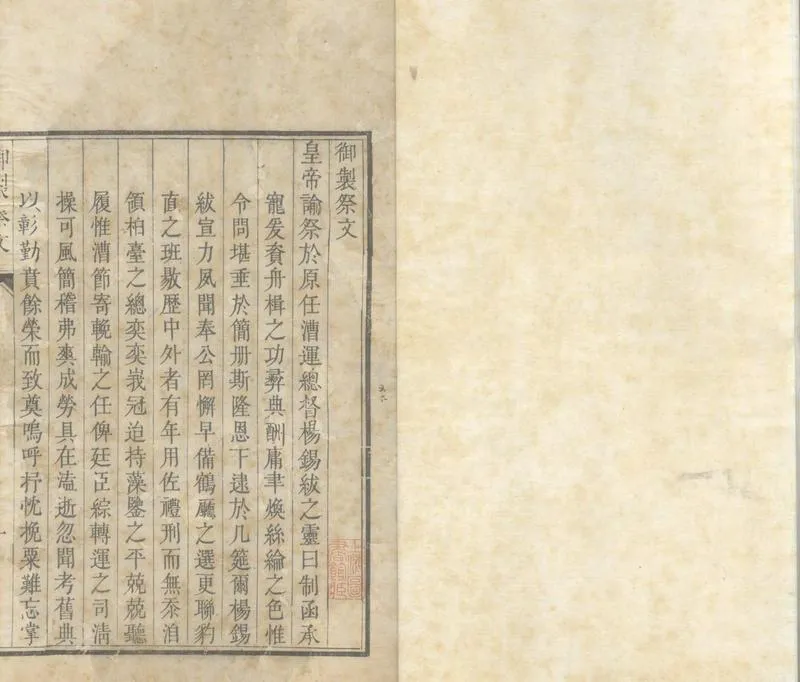 御製祭文
皇帝諭祭於原任漕運總督楊錫紱之靈曰制函承
寵爰資舟楫之功彞典酬庸聿煥絲綸之色惟
令問堪垂於簡册斯隆恩下逮於几筵爾楊錫
紱宣力夙聞奉公罔懈早備鶴廳之選更聯豹
直之班敭歴中外者有年用佐禮刑而無忝洎
領柏臺之總奕奕峩冠迨持藻鑒之平兢兢聽
履惟漕節寄輓輸之任俾廷臣綜轉運之司淸
操可風簡稽弗爽成勞具在溘逝忽聞考舊典
以彰勤賁餘榮而致奠嗚呼抒忱挽粟難忘掌
御製祭文
一